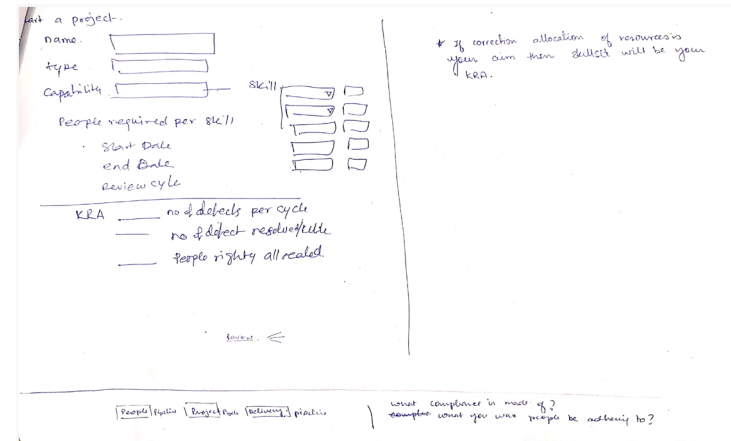 Start a project-.
name.
type
Capability
Skill
People required per skill
Start Date
end Date
Review cycle
KRA
no of defects per cycle
no of defect resolved/
People righty allocated.
* If correction allocation of resources is
your aim then skillset will be your
KRA.
People Pipeline Project Delivery pipeline
what compliance is made of?
what you was people be adhering to?